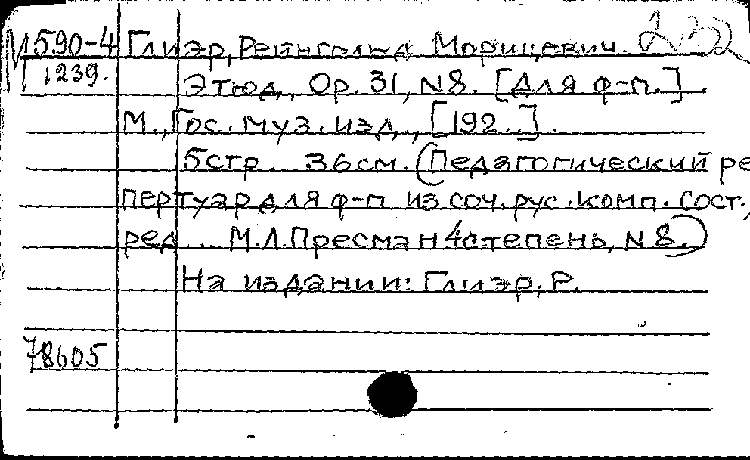 М590-4 Глиэр, Рейнгольд Морицевич. 232
1239.
Этюд, Op. 31, N8. [Для ф-п.].
М., Гос. муз. изд., [192..].
5стр. 36см. (Педагогический ре
пертуар для ф-п из соч. рус. комп. Сост.,
ред... М.Л.Пресман 4степень, N 8.)
На издании: Глиэр, Р.
78605